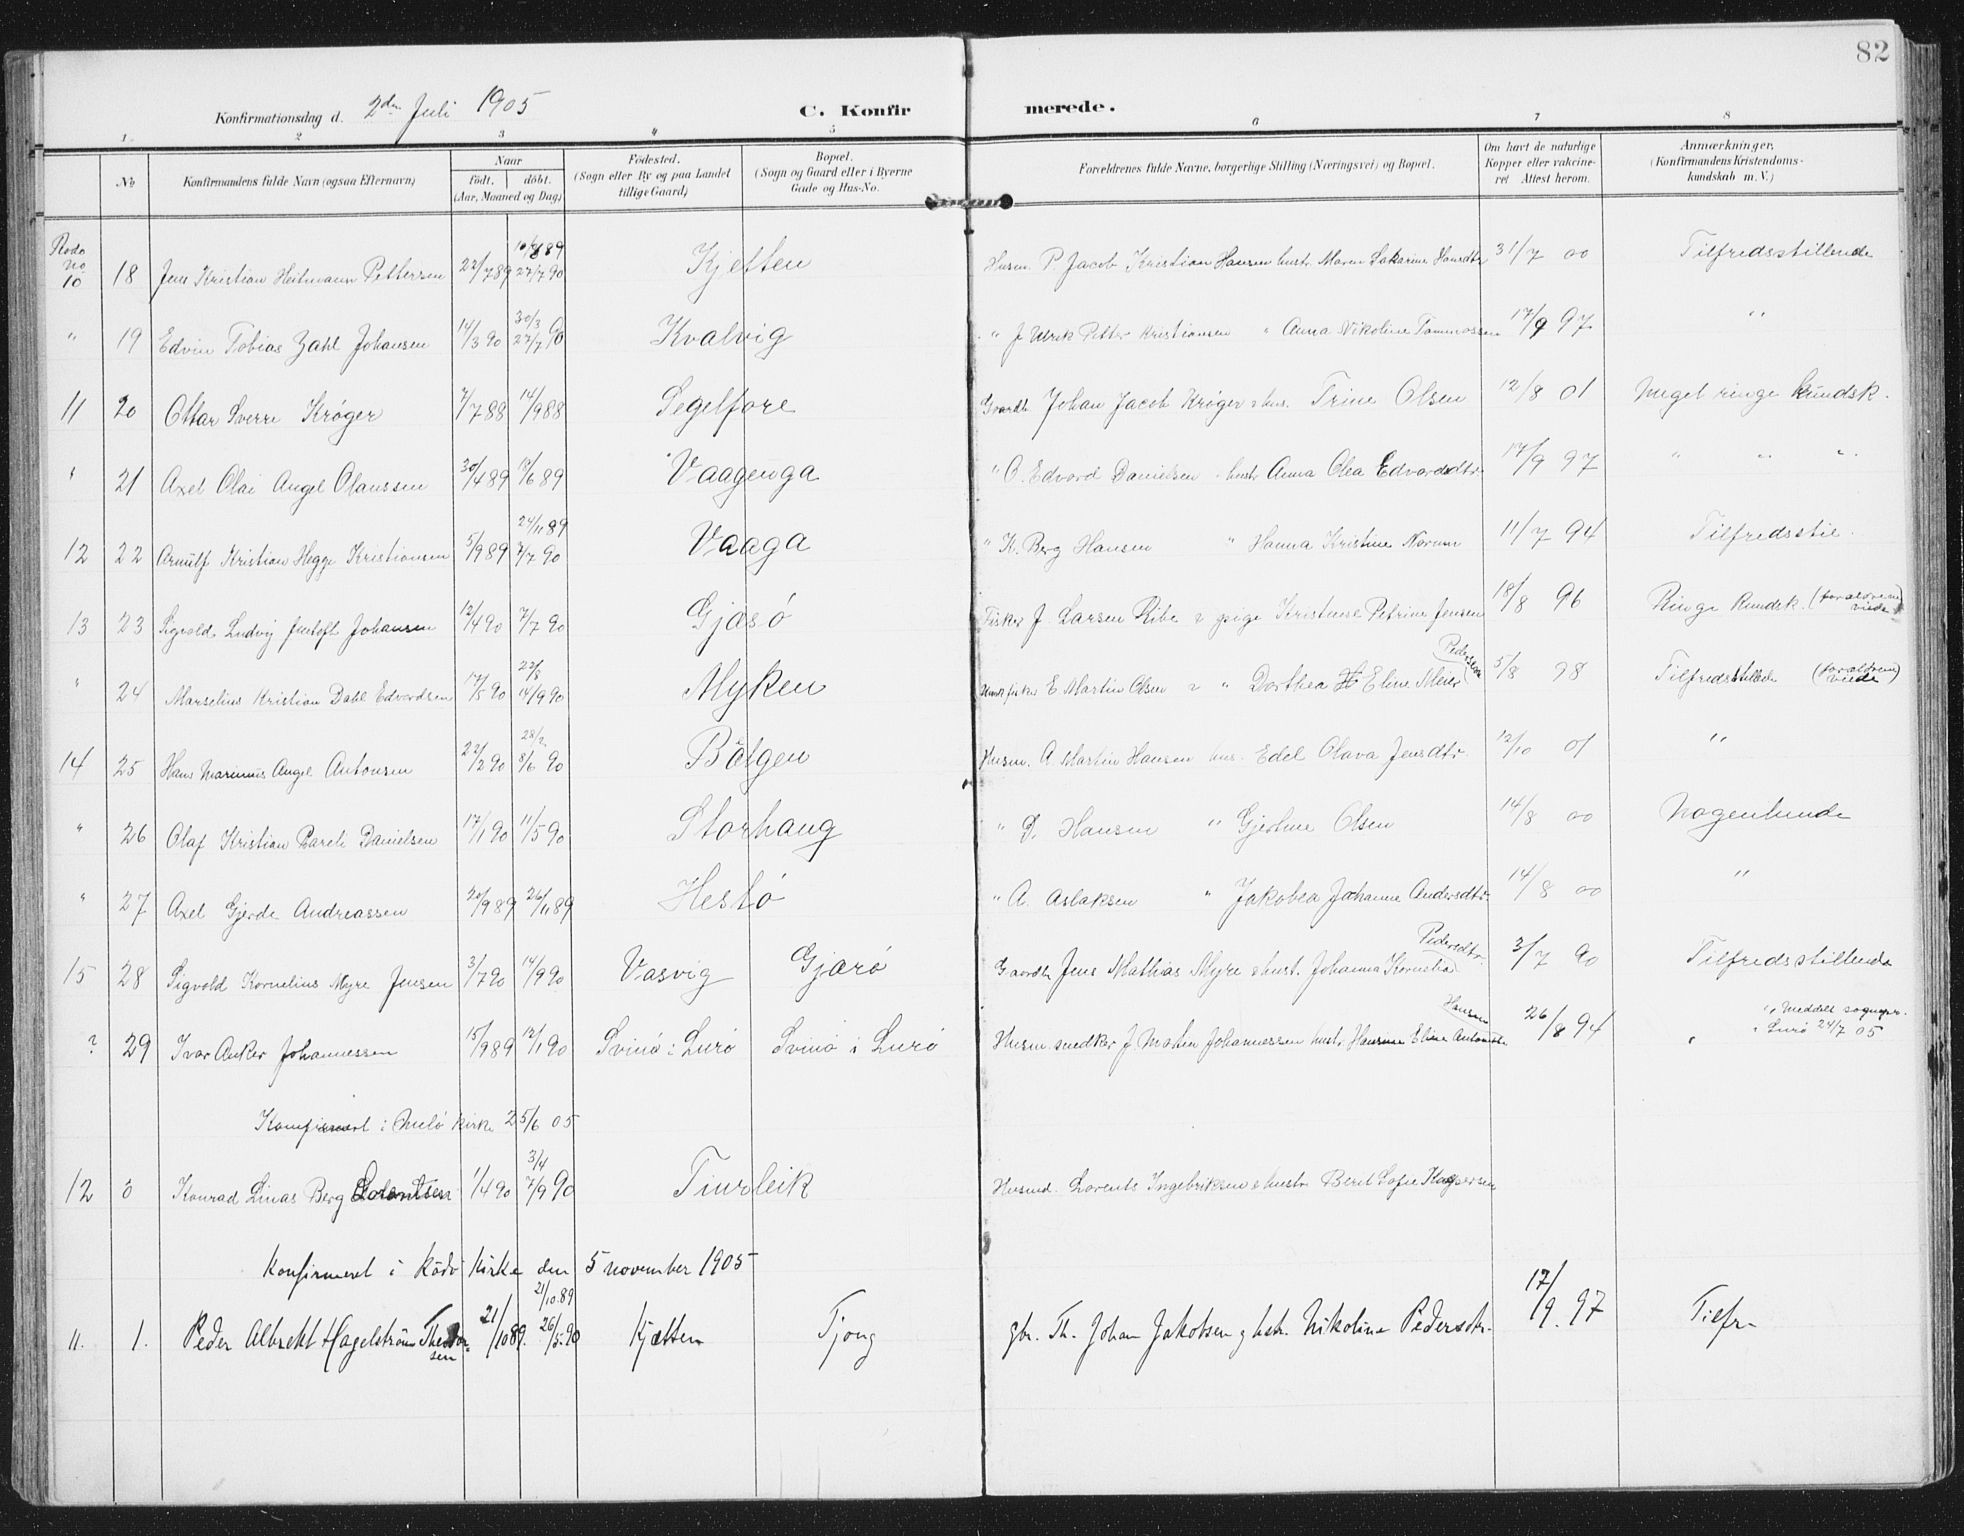 82
Konfirmationsdag d. 2den Juli 1905 C. Konfirmerede.
1. 2 3 4 5 6 7 8
No Konfirmandens fulde Navn (ogsaa Efternavn) Naar født. døbt. (Aar, Maaned og Dag) Fødested. (Sogn eller By og paa Landet tillige Gaard) Bopæl. (Sogn og Gaard eller i Byerne Gade og Hus-No. Forældrenes fulde Navne, borgerlige Stilling (Næringsvei) og Bopæl. Om havt de naturlige Kopper eller vakcineret Attest herom. Anmærkninger. (Konfirmandens Kristendomskundskab m. V.)
Rødø No 10 18 Jens Kristian Heitmann Pettersen 22/7 89 27/7 90 Kjetten Husm. P. Jacob Kristian Hansen hustr. Maren Hansdtr 31/7 00 Tilfredsstillende
" 19 Edvin Tobias Zahl Johansen 14/3 90 30/3 27/7 90 Kvalvig " J Ulrik Petter Kristiansen " Anna Nikoline Tommassen 17/9 97 "
11 20 Ottar Sverre Krøger 7/7 88 14/9 88 Segelfore Gaardb. Johan Jacob Krøger & hus. Trine Olsen 12/8 01 Meget ringe kundsk.
" 21 Axel Olai Angel Olaussen 30/4 89 /6 89 Vaagenga " O. Edvard Danielsen hustr Anna Olea Edvardsdtr 17/9 97 " " "
12 22 Arnulf Kristian Hegge Kristiansen 5/9 89 24/11 89 7/7 90 Vaaga " K. Berg Hansen " Hanna Kristine Norum 11/7 94 Tilfredsstil.
13 23 Sigvald Ludvig Johansen 12/4 90 7/7 90 Gjæsø Fisker J. Larsen Ribe & pige Kristense Petrine Jensen 18/8 96 Ringe kundsk. (forældrene viede)
" 24 Marselius Kristian Dahl Edvardsen 17/5 90 22/8 14/9 90 Myken fisker E. Martin Olsen & " Dorthea Eline Meier Pedersen 5/8 98 Tilfredsstillede (forældrene viede)
14 25 Hans Marinus Angel Antonsen 22/2 90 28/2 8/6 90 Bolgen Husm. A. Martin Hansen hus. Edel Olava Jensdtr. 12/10 01 "
" 26 Olaf Kristian Pareli Danielsen 17/1 90 11/5 90 Storhaug " D. Hansen " Gjertine Olsen 14/8 00 Nogenlunde
" 27 Axel Gjerde Andreassen 20/9 89 26/11 89 Hestø " A. Aslaksen " Jakobea Johanna Andersdtr. 14/8 00 "
15 28 Sigvald Kornelius Myre Jensen 3/7 90 14/9 90 Vasvig Gjærø Gaardb. Jens Mathias Myre & hust. Johanna Kornelia Pedersdtr. 3/7 90 Tilfredsstillende
? 29 Ivar Anker Johannessen 15/9 89 12/1 90 Svinø i Lurø Svinø i Lurø Husm snedker J. Martin Johannessen hustr Hansine Eline Antonsdtr Hansen 26/8 94 " Meddelt sognepr. i Lurø 24/7 05
Konfirmert i Melø kirke 25/6 05
12 Konrad Linas Berg Lorentsen 1/4 90 3/4 7/9 90 Tinvleik Husmd. Lorents Ingebriktsen & hustr Berit Sofie Kaspersen
Konfirmeret i Rödö Kirke den 5 november 1905
11. 1. Peder Albrekt Hagelström Theodorsen 21/10 89. 21/10.89 26/5.90 Kjætten Tjong gbr. Th. Johan Jakobsen g hstr. Nikoline Pedersdtr. 17/9. 97 Tilfr.